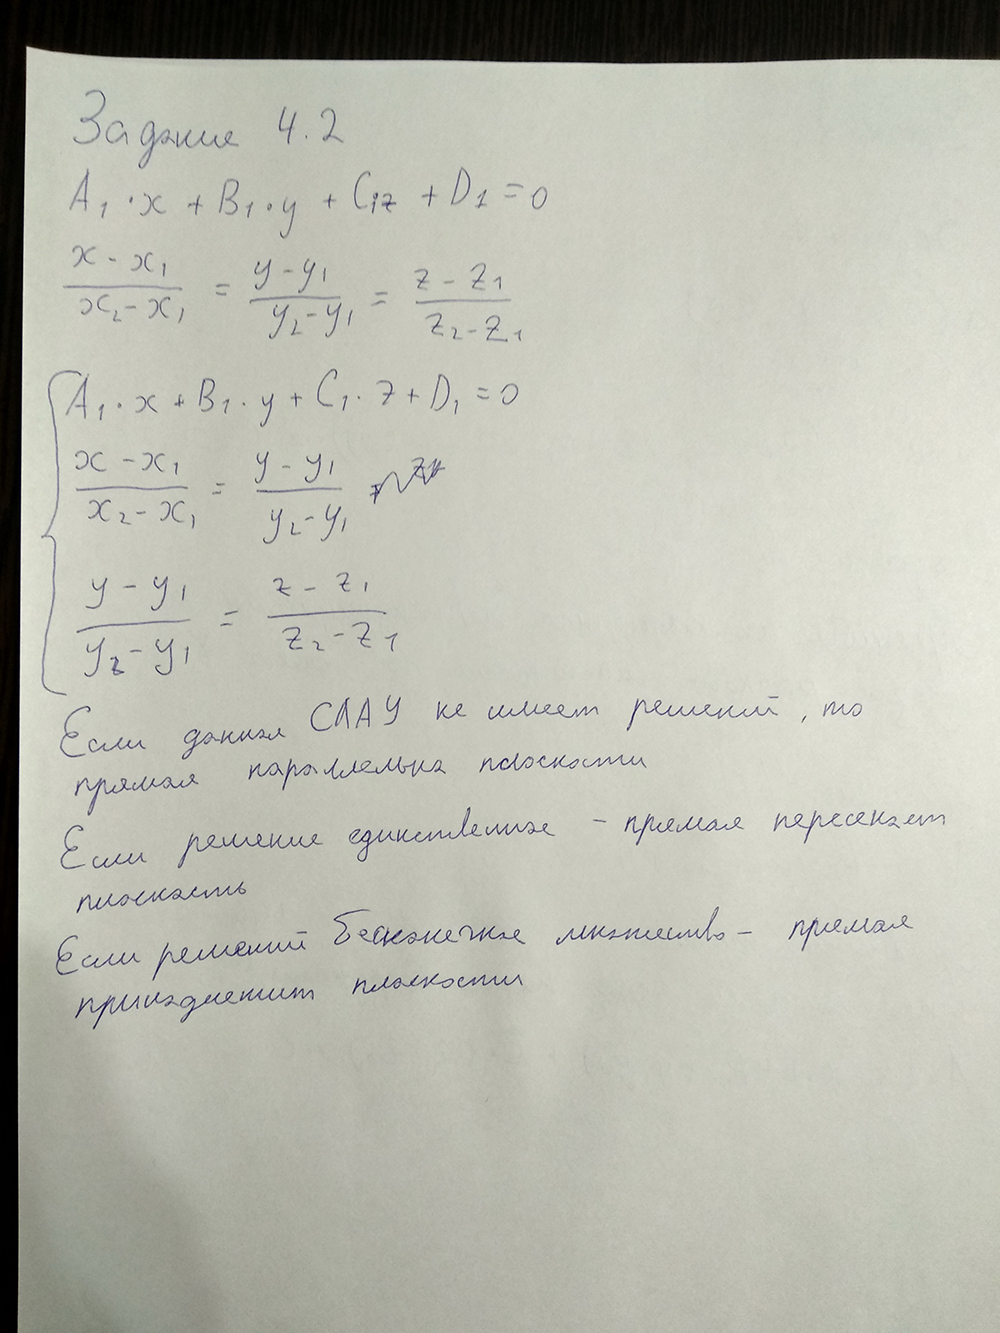 Задание 4.2
A₁·x + B₁·y + C₁z + D₁ = 0
(x - x₁)/(x₂ - x₁) = (y - y₁)/(y₂ - y₁) = (z - z₁)/(z₂ - z₁)
{ A₁·x + B₁·y + C₁·z + D₁ = 0
(x - x₁)/(x₂ - x₁) = (y - y₁)/(y₂ - y₁)
(y - y₁)/(y₂ - y₁) = (z - z₁)/(z₂ - z₁)
Если данная СЛАУ не имеет решений, то
прямая параллельна плоскости
Если решение единственное - прямая пересекает
плоскость
Если решений бесконечное множество - прямая
принадлежит плоскости